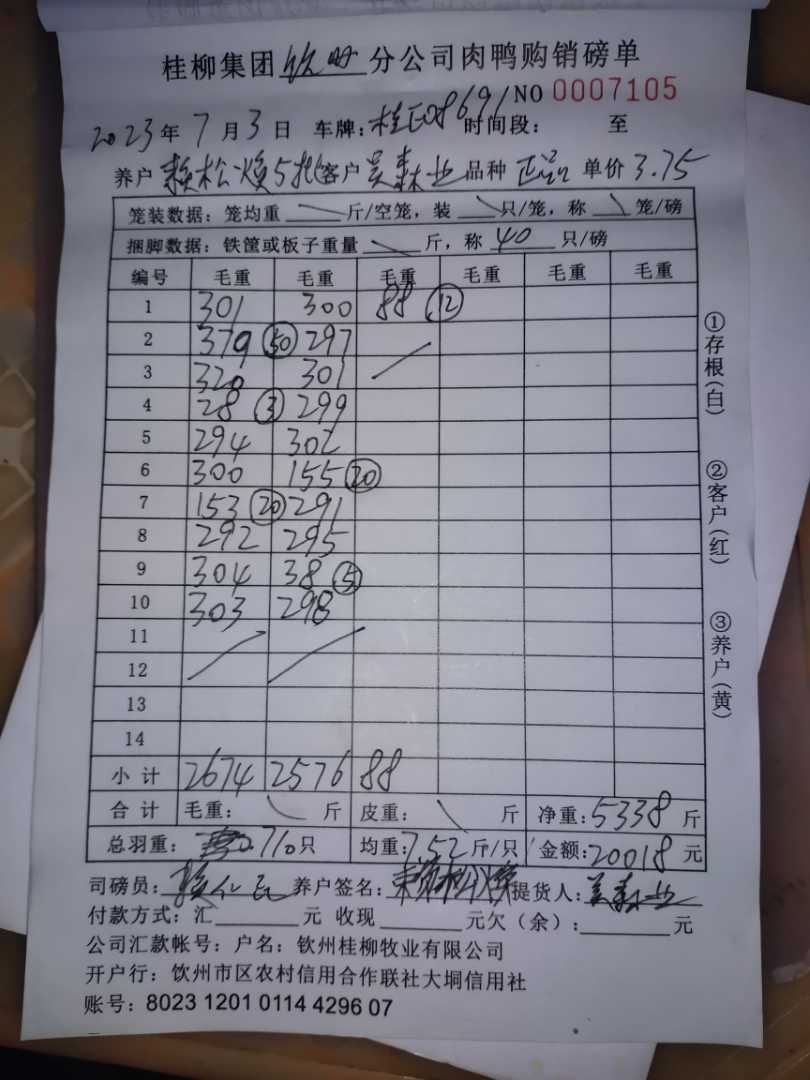 桂柳集团钦州分公司肉鸭购销磅单
NO 0007105
2023年7月3日 车牌:桂E08691 时间段: 至
养户 赖松焕5批 客户 吴森业 品种 正品 单价 3.75
笼装数据:笼均重 斤/空笼,装 只/笼,称 笼/磅
捆脚数据:铁筐或板子重量 斤,称 40 只/磅
编号 毛重 毛重 毛重 毛重 毛重 毛重
1 301 300 88 ⑫
2 379 ㊿ 297
3 320 301
4 28 ③ 299
5 294 302
6 300 155 ⑳
7 153 ⑳ 291
8 292 295
9 304 38 ⑤
10 303 298
11
12
13
14
小计 2674 2576 88
合计 毛重: 斤 皮重: 斤 净重:5338 斤
总羽重: 710只 均重:7.52斤/只 金额:20018元
司磅员: 养户签名:赖松焕 提货人:吴森业
付款方式:汇 元 收现 元欠(余): 元
公司汇款帐号:户名:钦州桂柳牧业有限公司
开户行:钦州市区农村信用合作联社大垌信用社
账号:8023 1201 0114 4296 07
①存根(白)
②客户(红)
③养户(黄)